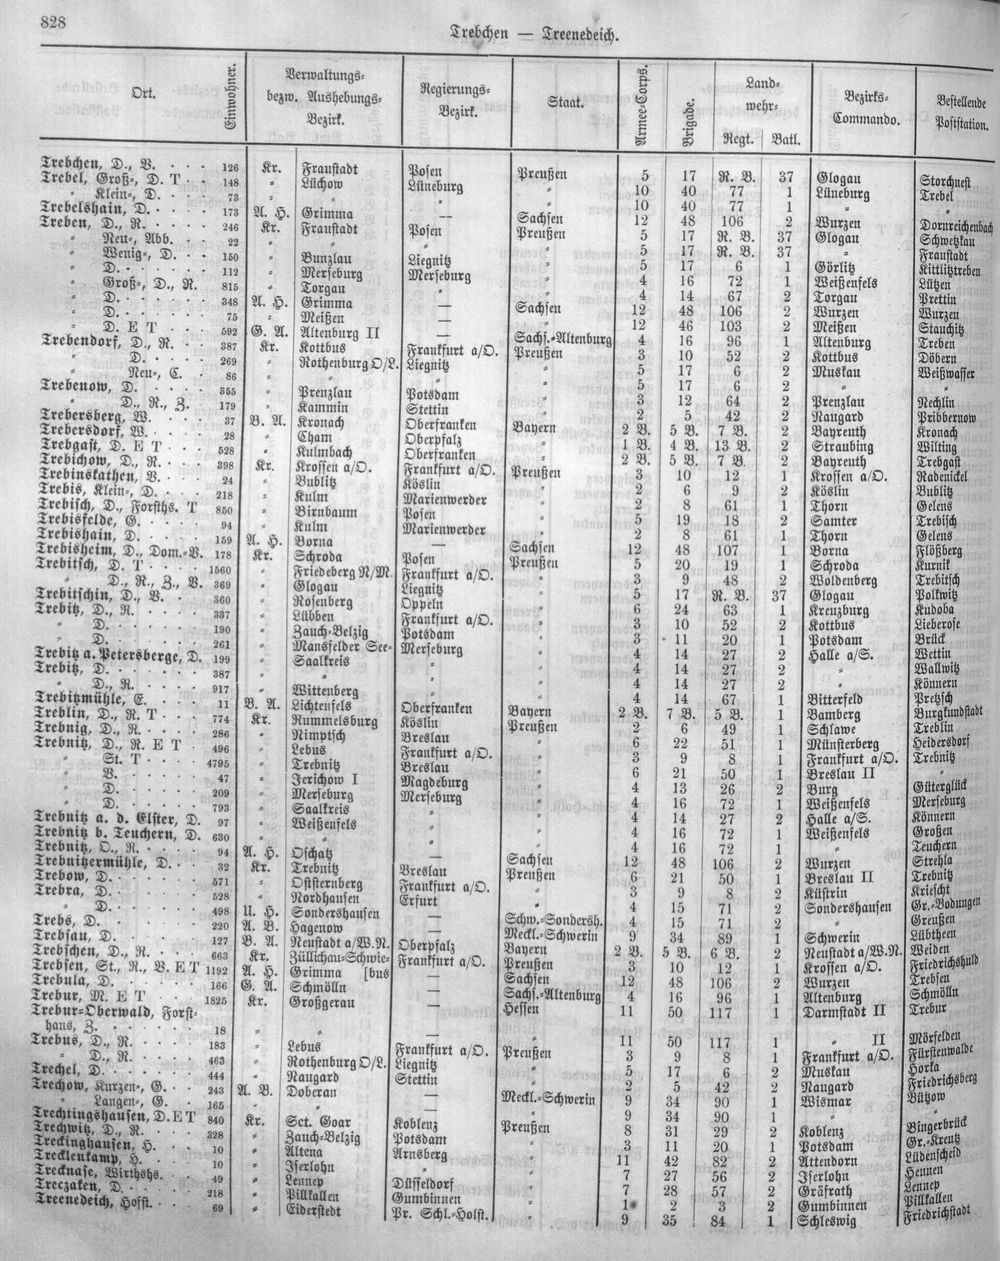 828
Trebchen — Treenedeich.
Ort. Einwohner. Verwaltungs- bezw. Aushebungs- Bezirk. Regierungs- Bezirk. Staat. Armee-Corps. Brigade. Land- wehr- Regt. Batl. Bezirks- Commando. Bestellende Poststation.
Trebchen, D., V. 126 Kr. Fraustadt Posen Preußen 5 17 R. B. 37 Glogau Storchnest
Trebel, Groß-, D. T 148 " Lüchow Lüneburg " 10 40 77 1 Lüneburg Trebel
" Klein-, D. 73 " " " " 10 40 77 1 " "
Trebelshain, D. 173 A. H. Grimma — Sachsen 12 48 106 2 Wurzen Dornreichenbach
Treben, D., R. 246 Kr. Fraustadt Posen Preußen 5 17 R. B. 37 Glogau Schwetzkau
" Neu-, Abb. 22 " " " " 5 17 R. B. 37 " Fraustadt
" Wenig-, D. 150 " Bunzlau Liegnitz " 5 17 6 1 Görlitz Kittlitztreben
" D. 112 " Merseburg Merseburg " 4 16 72 1 Weißenfels Lützen
" Groß-, D., R. 815 " Torgau " " 4 14 67 2 Torgau Prettin
" D. 348 A. H. Grimma — Sachsen 12 48 106 2 Wurzen Wurzen
" D. 75 " Meißen — " 12 46 103 2 Meißen Stauchitz
" D. E T 592 G. A. Altenburg II — Sachs.-Altenburg 4 16 96 1 Altenburg Treben
Trebendorf, D., R. 387 Kr. Kottbus Frankfurt a/O. Preußen 3 10 52 2 Kottbus Döbern
" D. 269 " Rothenburg O/L. Liegnitz " 5 17 6 2 Muskau Weißwasser
" Neu-, C. 86 " " " " 5 17 6 2 " "
Trebenow, D. 355 " Prenzlau Potsdam " 3 12 64 2 Prenzlau Nechlin
" D., R., Z. 179 " Kammin Stettin " 2 5 42 2 Naugard Pribbernow
Trebersberg, W. 37 B. A. Kronach Oberfranken Bayern 2 B. 5 B. 7 B. 2 Bayreuth Kronach
Trebersdorf, W. 28 " Cham Oberpfalz " 1 B. 4 B. 13 B. 2 Straubing Wilting
Trebgast, D. E T 528 " Kulmbach Oberfranken " 2 B. 5 B. 7 B. 2 Bayreuth Trebgast
Trebichow, D., R. 398 Kr. Krossen a/O. Frankfurt a/O. Preußen 3 10 12 1 Krossen a/O. Radenickel
Trebinskathen, V. 24 " Bublitz Köslin " 2 6 9 2 Köslin Bublitz
Trebis, Klein-, D. 218 " Kulm Marienwerder " 2 8 61 1 Thorn Gelens
Trebisch, D., Forsths. T 850 " Birnbaum Posen " 5 19 18 2 Samter Trebisch
Trebisfelde, G. 94 " Kulm Marienwerder " 2 8 61 1 Thorn Gelens
Trebishain, D. 159 A. H. Borna — Sachsen 12 48 107 1 Borna Flößberg
Trebisheim, D., Dom.-V. 178 Kr. Schroda Posen Preußen 5 20 19 1 Schroda Kurnik
Trebitsch, D. T 1560 " Friedeberg N/M. Frankfurt a/O. " 3 9 48 2 Woldenberg Trebitsch
" D., R., Z., V. 369 " Glogau Liegnitz " 5 17 R. B. 37 Glogau Polkwitz
Trebitschin, D., V. 360 " Rosenberg Oppeln " 6 24 63 1 Kreuzburg Kudoba
Trebitz, D., R. 337 " Lübben Frankfurt a/O. " 3 10 52 2 Kottbus Lieberose
" D. 190 " Zauch-Belzig Potsdam " 3 11 20 1 Potsdam Brück
" D. 261 " Mansfelder See- Merseburg " 4 14 27 2 Halle a/S. Wettin
Trebitz a. Petersberge, D. 199 " Saalkreis " " 4 14 27 2 " Wallwitz
Trebitz, D. 387 " " " " 4 14 27 2 " Könnern
" D., R. 917 " Wittenberg " " 4 14 67 1 Bitterfeld Pretzsch
Trebitzmühle, E. 11 B. A. Lichtenfels Oberfranken Bayern 2 B. 7 B. 5 B. 1 Bamberg Burgkundstadt
Treblin, D., R. T 774 Kr. Rummelsburg Köslin Preußen 2 6 49 1 Schlawe Treblin
Trebnig, D., R. 286 " Nimptsch Breslau " 6 22 51 1 Münsterberg Heidersdorf
Trebnitz, D., R. E T 496 " Lebus Frankfurt a/O. " 3 9 8 1 Frankfurt a/O. Trebnitz
" St. T 4795 " Trebnitz Breslau " 6 21 50 1 Breslau II "
" V. 47 " Jerichow I Magdeburg " 4 13 26 2 Burg Güterglück
" D. 209 " Merseburg Merseburg " 4 16 72 1 Weißenfels Merseburg
" D. 793 " Saalkreis " " 4 14 27 2 Halle a/S. Könnern
Trebnitz a. d. Elster, D. 97 " Weißenfels " " 4 16 72 1 Weißenfels Großen
Trebnitz b. Teuchern, D. 630 " " " " 4 16 72 1 " Teuchern
Trebnitz, O., R. 94 A. H. Oschatz — Sachsen 12 48 106 2 Wurzen Strehla
Trebnitzermühle, D. 32 Kr. Trebnitz Breslau Preußen 6 21 50 1 Breslau II Trebnitz
Trebow, D. 571 " Oststernberg Frankfurt a/O. " 3 9 8 2 Küstrin Kriescht
Trebra, D. 528 " Nordhausen Erfurt " 4 15 71 2 Sondershausen Gr.-Bodungen
" D. 498 U. H. Sondershausen — Schw.-Sondersh. 4 15 71 2 " Greußen
Trebs, D. 220 A. B. Hagenow — Meckl.-Schwerin 9 34 89 1 Schwerin Lübtheen
Trebsau, D. 127 B. A. Neustadt a/W.N. Oberpfalz Bayern 2 B. 5 B. 6 B. 2 Neustadt a/W.N. Weiden
Trebschen, D., R. 663 Kr. Züllichau-Schwie- Frankfurt a/O. Preußen 3 10 12 1 Krossen a/O. Friedrichshuld
Trebsen, St., R., V. E T 1192 A. H. Grimma [bus — Sachsen 12 48 106 2 Wurzen Trebsen
Trebula, D. 166 G. A. Schmölln — Sachs.-Altenburg 4 16 96 1 Altenburg Schmölln
Trebur, M. E T 1825 Kr. Großgerau — Hessen 11 50 117 1 Darmstadt II Trebur
Trebur-Oberwald, Forst-
haus, Z. 18 " " — " 11 50 117 1 " II Mörfelden
Trebus, D., R. 183 " Lebus Frankfurt a/O. Preußen 3 9 8 1 Frankfurt a/O. Fürstenwalde
" D., R. 463 " Rothenburg O/L. Liegnitz " 5 17 6 2 Muskau Horka
Trechel, D. 444 " Naugard Stettin " 2 5 42 2 Naugard Friedrichsberg
Trechow, Kurzen-, G. 243 A. B. Doberan — Meckl.-Schwerin 9 34 90 1 Wismar Bützow
" Langen-, G. 165 " " — " 9 34 90 1 " "
Trechtingshausen, D. E T 840 Kr. Sct. Goar Koblenz Preußen 8 31 29 2 Koblenz Bingerbrück
Trechwitz, D., R. 328 " Zauch-Belzig Potsdam " 3 11 20 1 Potsdam Gr.-Kreutz
Treckinghausen, H. 10 " Altena Arnsberg " 11 42 82 2 Attendorn Lüdenscheid
Trecklenkamp, H. 10 " Iserlohn " " 7 27 56 2 Iserlohn Hennen
Trecknase, Wirthshs. 49 " Lennep Düsseldorf " 7 28 57 2 Gräfrath Lennep
Treczaken, D. 218 " Pillkallen Gumbinnen " 1 2 3 2 Gumbinnen Pillkallen
Treenedeich, Hofst. 69 " Eiderstedt Pr. Schl.-Holst. " 9 35 84 1 Schleswig Friedrichstadt